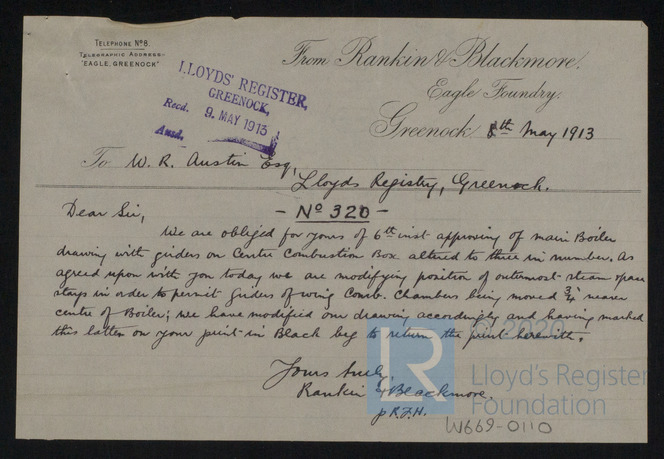 TELEPHONE Nº 8.
TELEGRAPHIC ADDRESS:-
"EAGLE, GREENOCK"
From Rankin & Blackmore,
Eagle Foundry,
Greenock 8th May 1913
LLOYDS' REGISTER,
GREENOCK,
Recd. 9. MAY 1913
Ansd.
To W. R. Austin Esq,
Lloyds Registry, Greenock.
Dear Sir,
- Nº 320 -
We are obliged for yours of 6th inst approving of main Boiler
drawing with girders on Centre Combustion Box altered to three in number. As
agreed upon with you today we are modifying position of outermost steam space
stays in order to permit girders of wing Comb. Chambers being moved 3/4" nearer
centre of Boiler; we have modified our drawing accordingly and having marked
this letter on your print in Black beg to return the print herewith.
Yours truly,
Rankin & Blackmore.
p R.F.H.
© 2020
LR
Lloyd's Register
Foundation
W669-0110